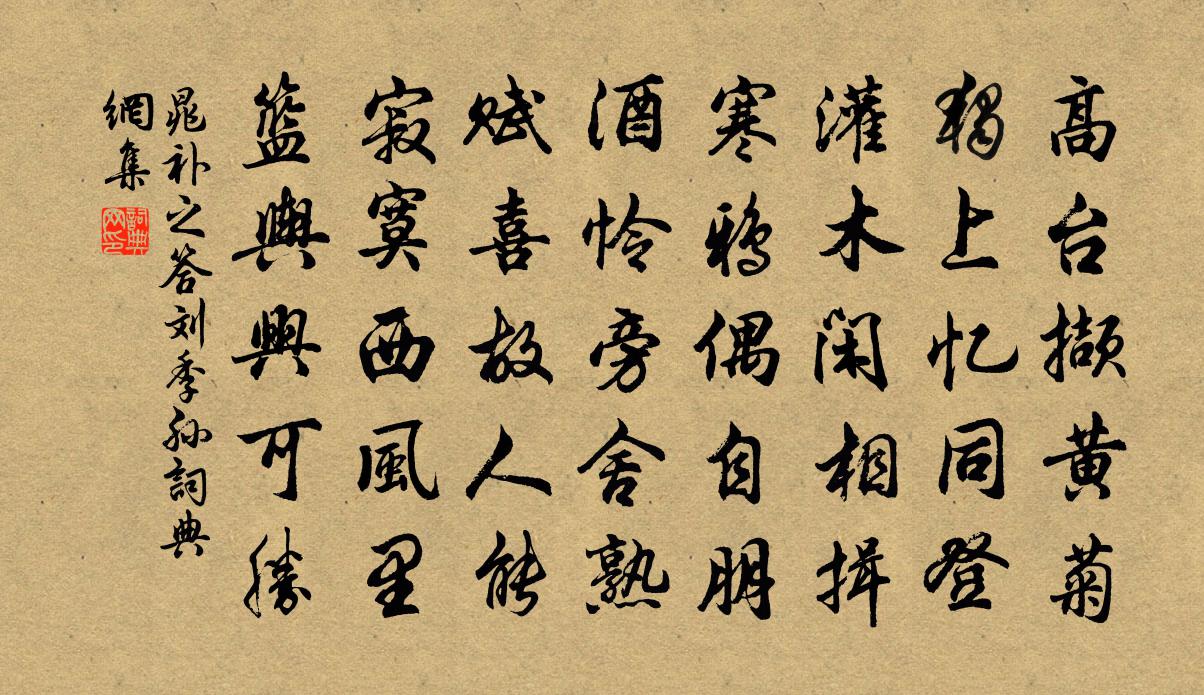 高台撷黄菊
独上忆同登
灌木闲相揖
寒鸦偶自朋
酒怜旁舍熟
赋喜故人能
寂寞西风里
篮舆兴可胜
晁补之答刘季孙詞典
網集
詞典
网印